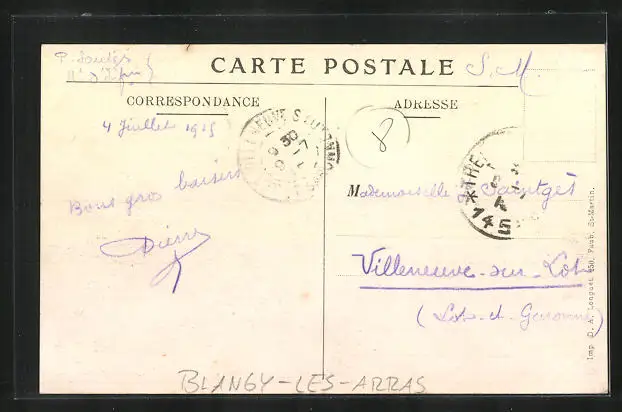 CARTE POSTALE
S. M.
CORRESPONDANCE
ADRESSE
4 Juillet 1915
Bons gros baisers
Pierre
8
VILLENEUVE S
TRE
145
Mademoiselle Saintgès
Villeneuve-sur-Lot
(Lot-et-Garonne)
Imp. D. A. Longuet 250, Faub. St-Martin.
BLANGY-LES-ARRAS